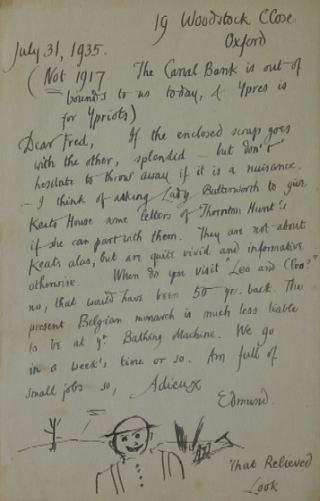 19 Woodstock Close
Oxford
July 31, 1935.
(Not 1917 The Canal Bank is out of
bounds to us today, & Ypres is
for Ypriots)
Dear Fred, If the enclosed scraps goes
with the other, splendid – but don't
hesitate to throw away if it is a nuisance.
– I think of asking Lady Butterworth to give
Keats House some letters of Thornton Hunt's
if she can part with them. They are not about
Keats, alas, but are quite vivid and informative
otherwise. When do you visit "Leo and Cleo?"
no, that would have been 50 yrs. back. The
present Belgian monarch is much less liable
to be at yr. Bathing Machine. We go
in a week's time or so. Am full of
small jobs so, Adieux
Edmund.
That Relieved
Look